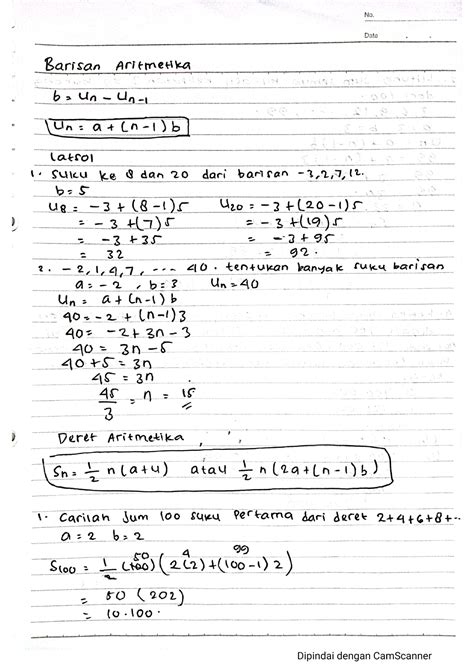 No.
Date
Barisan Aritmetika
b = Un - Un-1
Un = a + (n-1) b
Latsol
1. Suku ke 8 dan 20 dari barisan -3,2,7,12.
b = 5
U8 = -3 + (8-1)5 U20 = -3 + (20-1)5
= -3 + (7)5 = -3 + (19)5
= -3 + 35 = -3 + 95
= 32 = 92.
2. -2,1,4,7, .... 40. tentukan banyak suku barisan
a = -2 , b = 3 Un = 40
Un = a + (n-1) b
40 = -2 + (n-1)3
40 = -2 + 3n - 3
40 = 3n - 5
40 + 5 = 3n
45 = 3n
45/3 = n = 15
Deret Aritmetika
Sn = 1/2 n (a+u) atau 1/2 n (2a+(n-1)b)
1. Carilah Jum 100 suku pertama dari deret 2+4+6+8+..
a = 2 b = 2
50 4 99
S100 = 1/2 (100) (2(2)+(100-1)2)
= 50 (202)
= 10.100.
Dipindai dengan CamScanner